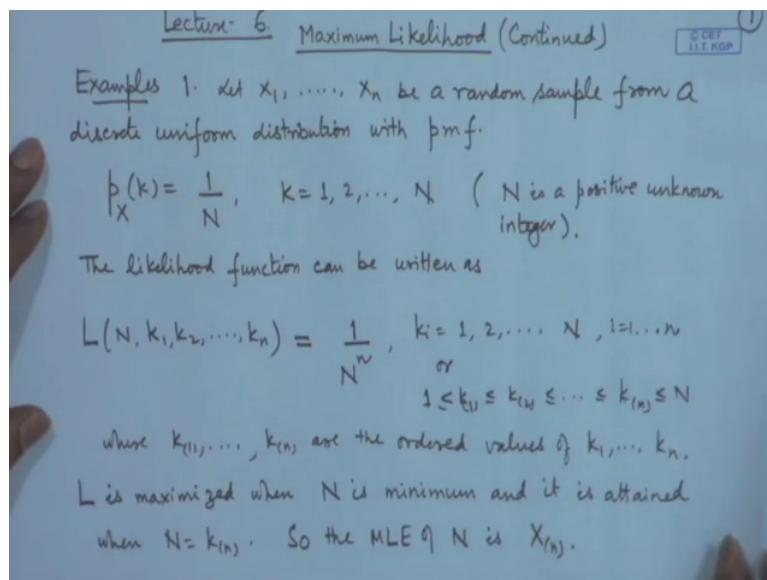 Lecture- 6. Maximum Likelihood (Continued)
1
© CET
I.I.T. KGP
Examples 1. Let X₁, ....., Xₙ be a random sample from a
discrete uniform distribution with pmf.
p_X(k) = 1/N, k = 1, 2, ..., N ( N is a positive unknown
integer).
The likelihood function can be written as
L(N, k₁, k₂, ...., kₙ) = 1/Nⁿ, kᵢ = 1, 2, .... N, i=1...n
or
1 ≤ k₍₁₎ ≤ k₍₂₎ ≤ ... ≤ k₍ₙ₎ ≤ N
where k₍₁₎, ...., k₍ₙ₎ are the ordered values of k₁, ... kₙ.
L is maximized when N is minimum and it is attained
when N = k₍ₙ₎. So the MLE of N is X₍ₙ₎.